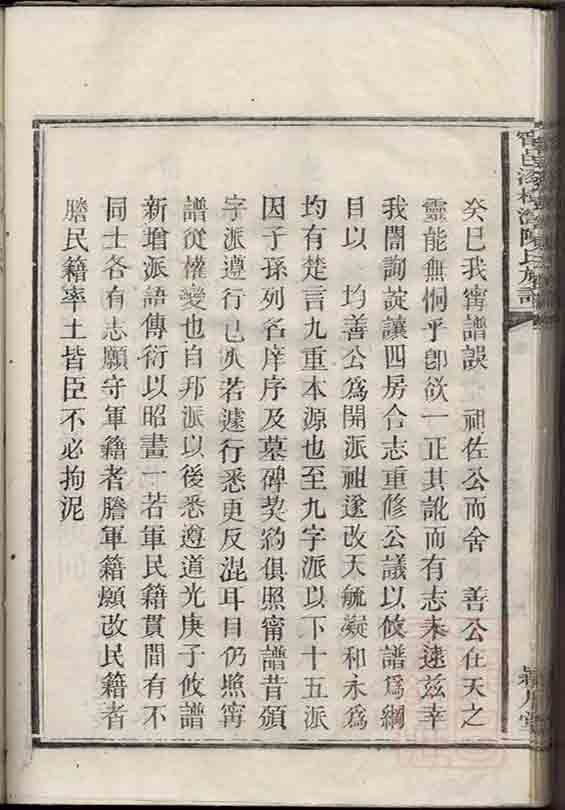 甯邑㵲楂灣陳氏族譜
潁川堂
癸巳我甯譜誤 祖佐公而舍 善公在天之
靈能無恫乎卽欲一正其訛而有志未逮茲幸
我闇詢淀讓四房合志重修公議以攸譜爲綱
目以 均善公爲開派祖遂改天毓凝和永爲
均有楚言九重本源也至九字派以下十五派
因子孫列名庠序及墓碑契約俱照甯譜昔頒
字派遵行已久若遽行悉更反混耳目仍照甯
譜從權變也自邦派以後悉遵道光庚子攸譜
新增派語傳衍以昭畫一若軍民籍貫間有不
同士各有志願守軍籍者謄軍籍願改民籍者
謄民籍率土皆臣不必拘泥